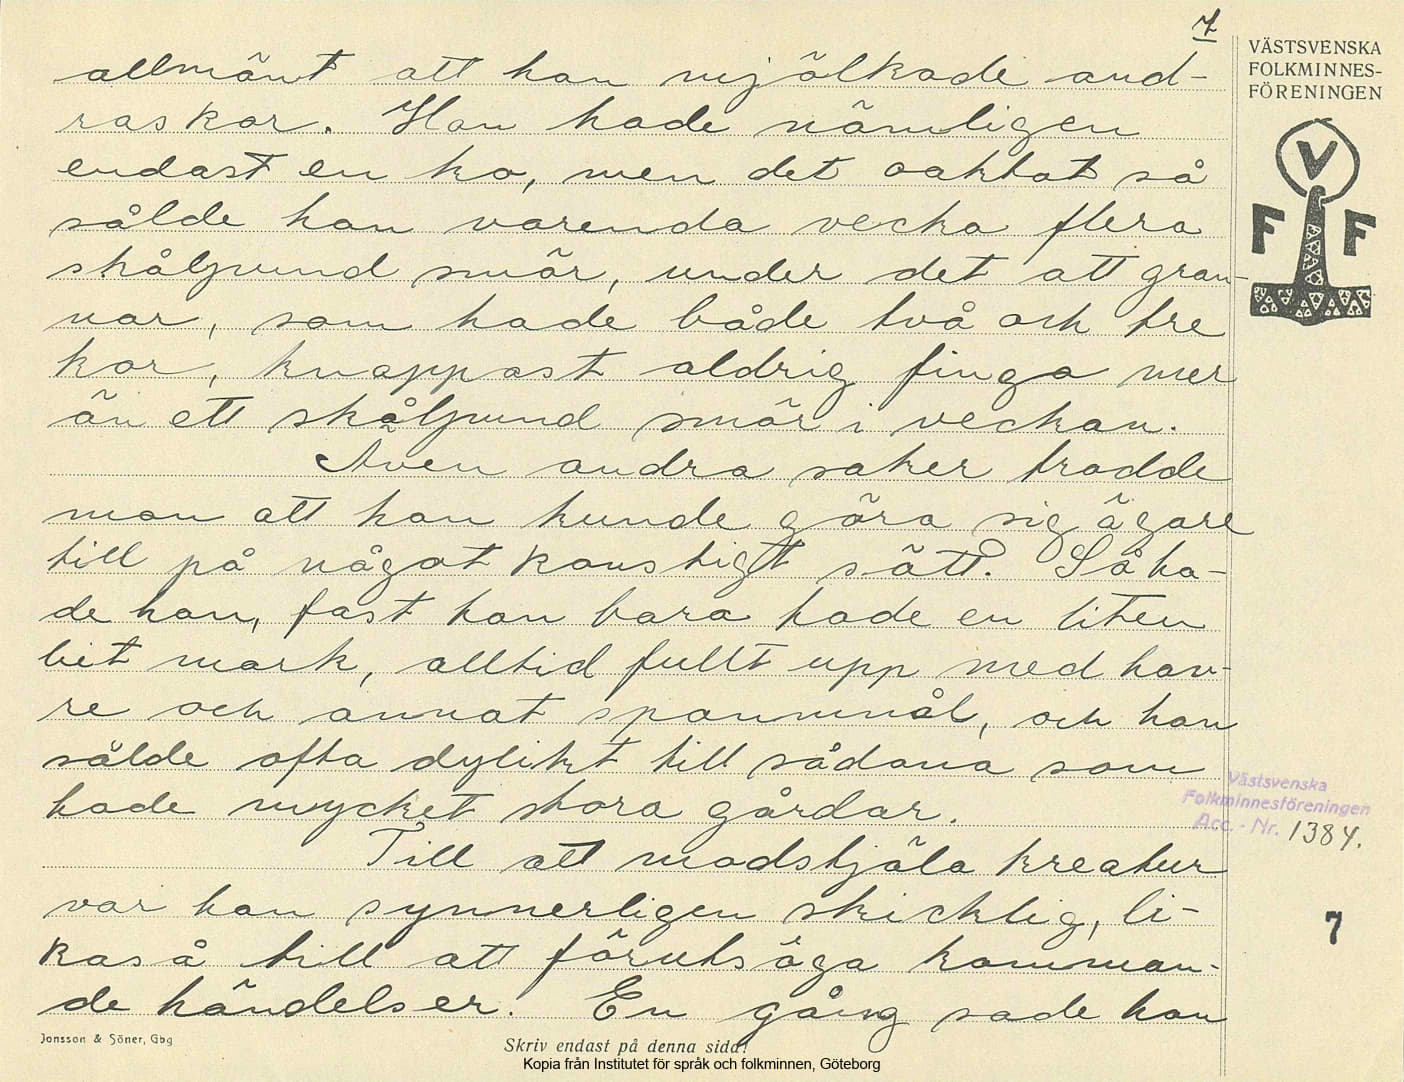 7
allmänt att han mjölkade and-
raskor. Han hade nämligen
endast en ko, men det oaktat så
sålde han varenda vecka flera
skålpund smör, under det att gran-
nar, som hade både två och tre
kor, knappast aldrig finga mer
än ett skålpund smör i veckan.
Även andra saker trodde
man att han kunde göra sig ägare
till på något konstigt sätt. Så ha-
de han, fast han bara hade en liten
bit mark, alltid fullt upp med hav-
re och annat spannmål, och han
sålde ofta dylikt till sådana som
hade mycket stora gårdar.
Till att modstjäla kreatur
var han synnerligen skicklig, li-
kaså till att förutsäga komman-
de händelser. En gång sade han
VÄSTSVENSKA
FOLKMINNES-
FÖRENINGEN
V
F F
Västsvenska
Folkminnesföreningen
Acc. - Nr. 1384.
7
Jonsson & Söner, Gbg
Skriv endast på denna sida!
Kopia från Institutet för språk och folkminnen, Göteborg